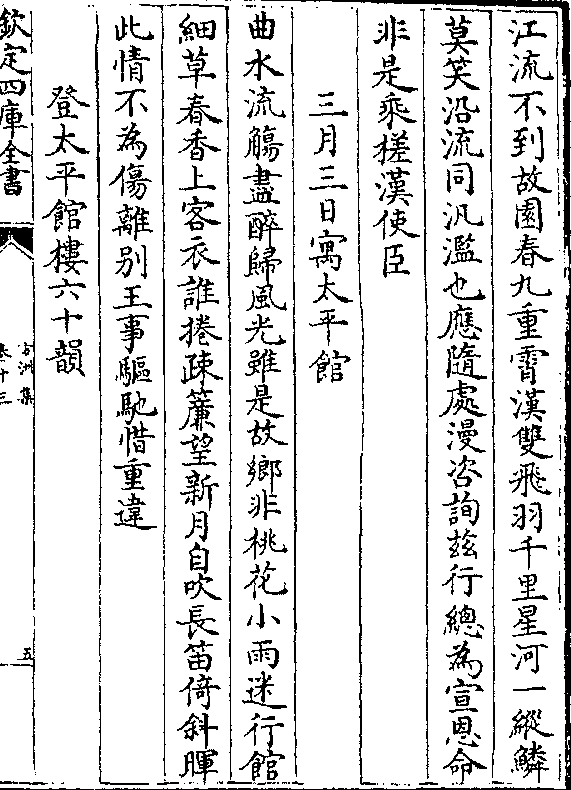 江流不到故園春九重霄漢雙飛羽千里星河一縱鱗
莫笑沿流同汎濫也應隨處漫咨詢兹行總為宣恩命
非是乘槎漢使臣
三月三日寓太平館
曲水流觴盡醉歸風光雖是故鄉非桃花小雨迷行館
細草春香上客衣誰捲疎簾望新月自吹長笛倚斜暉
此情不為傷離别王事驅馳惜重違
登太平館樓六十韻
欽定四庫全書
卷十三
五